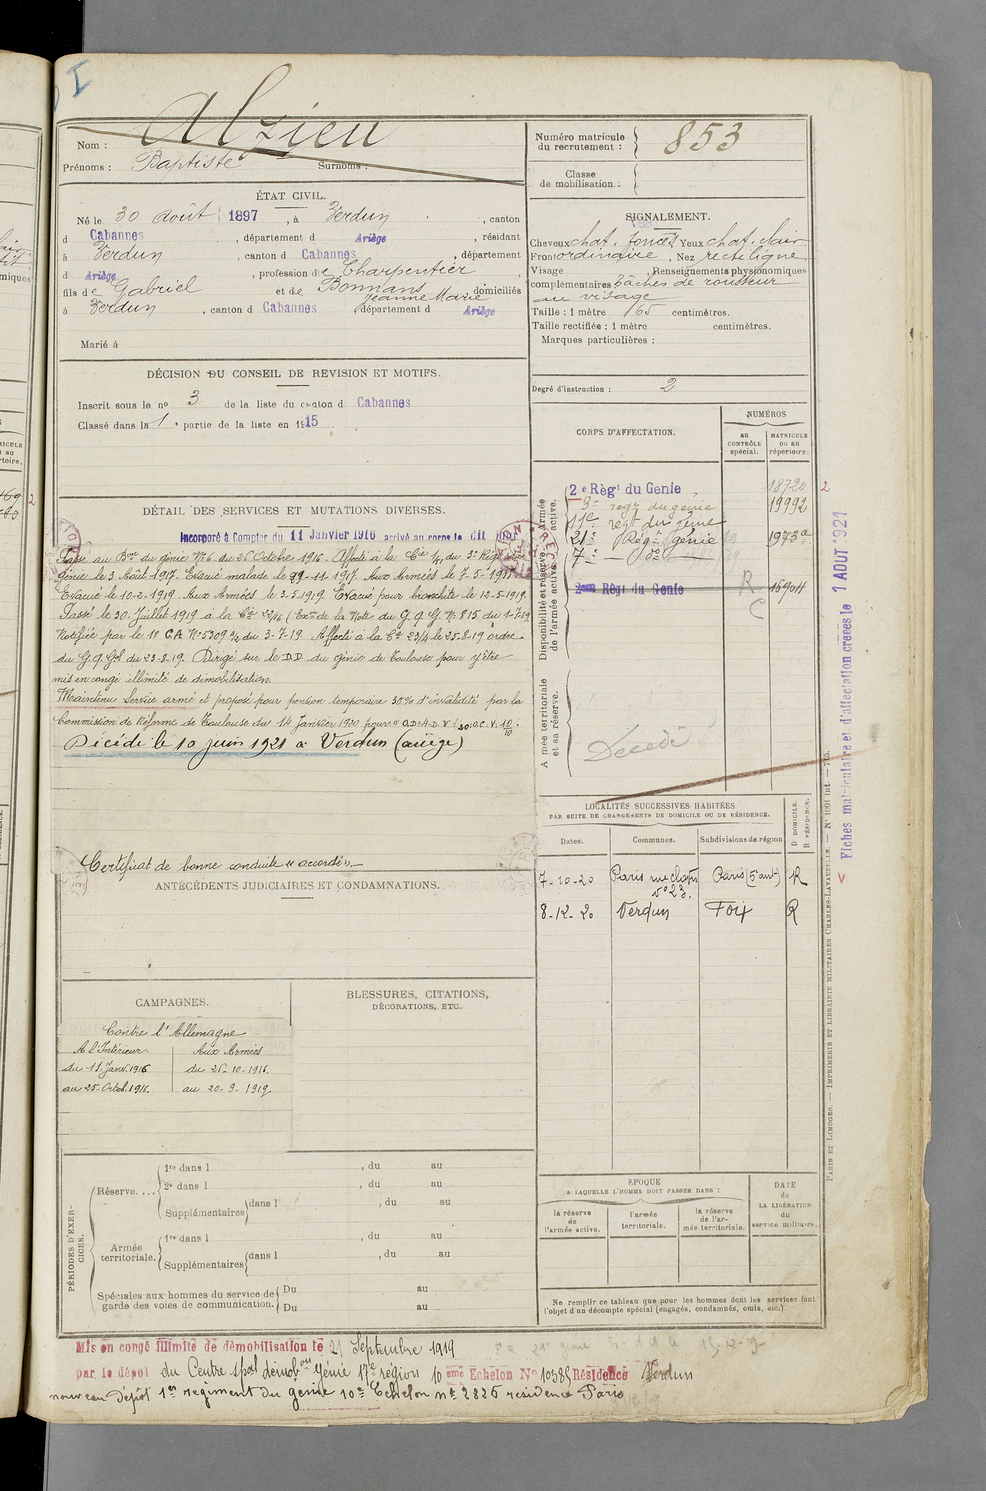 I
Nom : Alzieu
Prénoms : Baptiste Surnoms :
Numéro matricule du recrutement : 853
Classe de mobilisation :
ÉTAT CIVIL.
Né le 30 Août 1897, à Verdun, canton
d Cabannes, département d Ariège, résidant
à Verdun, canton d Cabannes, département
d Ariège, profession de Charpentier,
fils de Gabriel et de Bonnans Jeanne Marie, domiciliés
à Verdun, canton d Cabannes, département d Ariège
Marié à
SIGNALEMENT.
Cheveux chat. foncés Yeux chat. clair
Front ordinaire, Nez rectiligne
Visage Renseignements physionomiques
complémentaires tâches de rousseur
au visage
Taille : 1 mètre 65 centimètres.
Taille rectifiée : 1 mètre centimètres.
Marques particulières :
Degré d'instruction : 2
DÉCISION DU CONSEIL DE REVISION ET MOTIFS.
Inscrit sous le no 3 de la liste du canton d Cabannes
Classé dans la 1e partie de la liste en 1915.
CORPS D'AFFECTATION.
NUMÉROS
au CONTRÔLE spécial.
MATRICULE OU AU répertoire.
Armée active.
2e Règt du Génie 18720
3e regt du génie 19992
11e regt du génie
21e Régt génie 1973a
7e do
Disponibilité et réserve de l'armée active.
2eme Règt du Genie 16904
R
C
Armée territoriale et sa réserve.
Décédé
DÉTAIL DES SERVICES ET MUTATIONS DIVERSES.
Incorporé à Compter du 11 Janvier 1916 arrivé au corps le dit jour
Passé au Bon du génie No 6 du 26 Octobre 1916. Affecté à la Cie du 3e Régt
Génie le 3 Août 1917. Evacué malade le 29-11-1917. Aux Armées le 7-5-1917
Evacué le 10-2-1919. Aux Armées le 3-5-1919 Evacué pour bronchite le 12-5-1919.
Passé le 30 Juillet 1919 à la Cie 22/16 (Exon de la Note du G.Q.G. No 815 du 1-7-19
Notifiée par le 1e CA No 5309 3/3 du 3-7-19. Affecté à la Cie 23/4 le 25-8-19 ordre
du G.Q.Gal du 23-8-19. Dirigé sur le D.D. du génie de Toulouse pour y être
mis en congé illimité de démobilisation.
Maintenu Service armé et proposé pour pension temporaire 30% d'invalidité par la
Commission de Réforme de Toulouse du 14 Janvier 1920 pour
Décédé le 10 juin 1921 à Verdun (ariège)
Certificat de bonne conduite "accordé".
LOCALITÉS SUCCESSIVES HABITÉES
PAR SUITE DE CHANGEMENTS DE DOMICILE OU DE RÉSIDENCE.
Dates. Communes. Subdivisions de région D DOMICILE. R RÉSIDENCE.
7-10-20 Paris rue no 23. Paris (5e ar) R
8-12-20 Verdun Foix R
ANTÉCÉDENTS JUDICIAIRES ET CONDAMNATIONS.
CAMPAGNES.
Contre l'Allemagne
A l'Intérieur Aux Armées
du 11 Janv. 1916 du 26-10-1916.
au 25-Octob. 1916. au 20-9-1919
BLESSURES, CITATIONS,
DÉCORATIONS, ETC.
PÉRIODES D'EXERCICES.
Réserve.... 1re dans l , du au
2e dans l , du au
Supplémentaires dans l , du au
Armée territoriale. 1re dans l , du au
Supplémentaires dans l , du au
Spéciales aux hommes du service de garde des voies de communication. Du au
Du au
ÉPOQUE
A LAQUELLE L'HOMME DOIT PASSER DANS :
la réserve de l'armée active.
l'armée territoriale.
la réserve de l'armée territoriale.
DATE de LA LIBÉRATION du service militaire.
Ne remplir ce tableau que pour les hommes dont les services font
l'objet d'un décompte spécial (engagés, condamnés, omis, etc.)
Mis en congé illimité de démobilisation le 21 Septembre 1919
par le dépôt du Centre spal démobon Génie 17e région 10eme Echelon No 10385 Résidence Verdun
nouveau dépôt 1er regiment du génie 10e Echelon no 2825 residence Paris
Fiches matriculaire et d'affectation créées le 1 AOUT 1921
PARIS ET LIMOGES. — IMPRIMERIE ET LIBRAIRIE MILITAIRES CHARLES-LAVAUZELLE.